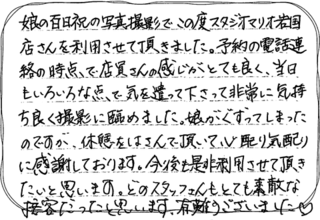 娘の百日祝の写真撮影で、この度スタジオマリオ岩国
店さんを利用させて頂きました。予約の電話連
絡の時点で、店員さんの感じがとても良く、当日
もいろいろな点で気を遣って下さって非常に気持
ち良く撮影に臨めました。娘がぐずってしまった
のですが、休憩をはさんで頂いて、心配り気配り
に感謝しております。今後も是非利用させて頂き
たいと思います。どのスタッフさんもとても素敵な
接客だったと思います。有難うございました♡